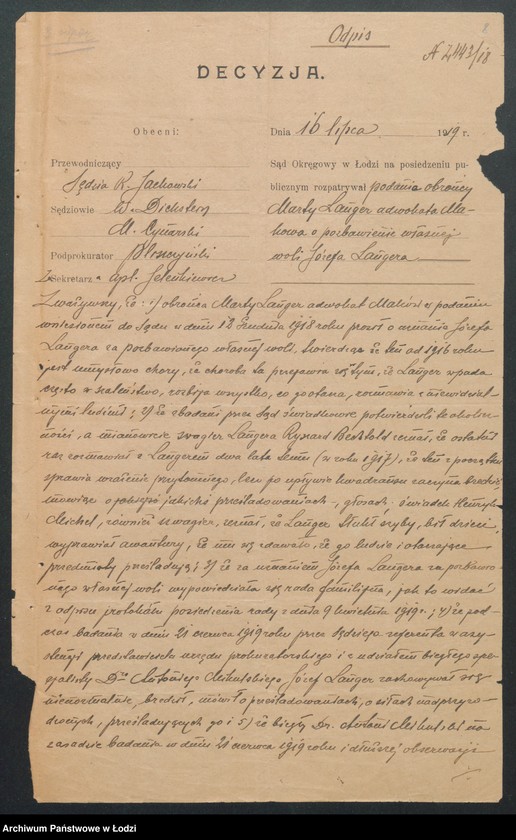 Odpis
№ Z 443/18
DECYZJA.
Obecni:
Dnia 16 lipca 1919 r.
Przewodniczący
Sędzia K. Jachowski
Sędziowie W.
M. Cynarski
Podprokurator Płoszyński
Sekretarz apl.
Sąd Okręgowy w Łodzi na posiedzeniu pu-
blicznym rozpatrywał podania obrońcy
Marty Langer adwokata Ma-
kowa o pozbawienie własnej
woli Józefa Langera
Zważywszy, że: 1) obrońca Marty Langer adwokat Maków w podaniu
wniesionem do Sądu w dniu 12 1918 roku prosił o uznanie Józefa
Langera za pozbawionego własnej woli, twierdząc że ten od 1916 roku
jest umysłowo chory, że choroba ta przejawia się tym, że Langer wpada
często w szaleństwo, rozbija wszystko, co go otacza, rozmawia z niewidzial-
nymi ludźmi; 2) że zbadani przez Sąd świadkowie potwierdzili te okolicz-
ności, a mianowicie szwagier Langera Ryszard Bechtold zeznał, że ostatni
raz rozmawiał z Langerem dwa lata temu (w roku 1917), że ten z początku
sprawia wrażenie przytomnego, lecz po upływie kwadransa zaczyna bredzić
mówiąc o jakichś prześladowaniach, głosach, świadek Henryk
Michel, również szwagier, zeznał, że Langer tłukł szyby, bił dzieci,
wyprawiał awantury, że mu się zdawało, że go ludzie i otaczające
przedmioty prześladują; 3) że za uznaniem Józefa Langera za pozbawio-
nego własnej woli wypowiedziała się rada familijna, jak to widać
z odpisu protokółu posiedzenia rady z dnia 9 kwietnia 1919 r.; 4) że pod-
czas badania w dniu 21 czerwca 1919 roku przez Sędziego referenta w asy-
stencji przedstawiciela urzędu prokuratorskiego i z udziałem biegłego spe-
cjalisty Dra Antoniego Mikulskiego Józef Langer zachowywał się
nienormalnie, bredził, mówił o prześladowaniach, o siłach nadprzyro-
dzonych, prześladujących go i 5) że biegły Dr. Antoni Mikulski na
zasadzie badania w dniu 21 czerwca 1919 roku i dłuższej obserwacji
Archiwum Państwowe w Łodzi